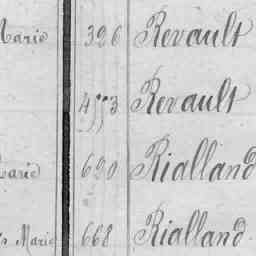 Marie 326 Revault
453 Revault
Marie 620 Rialland
Marie 668 Rialland